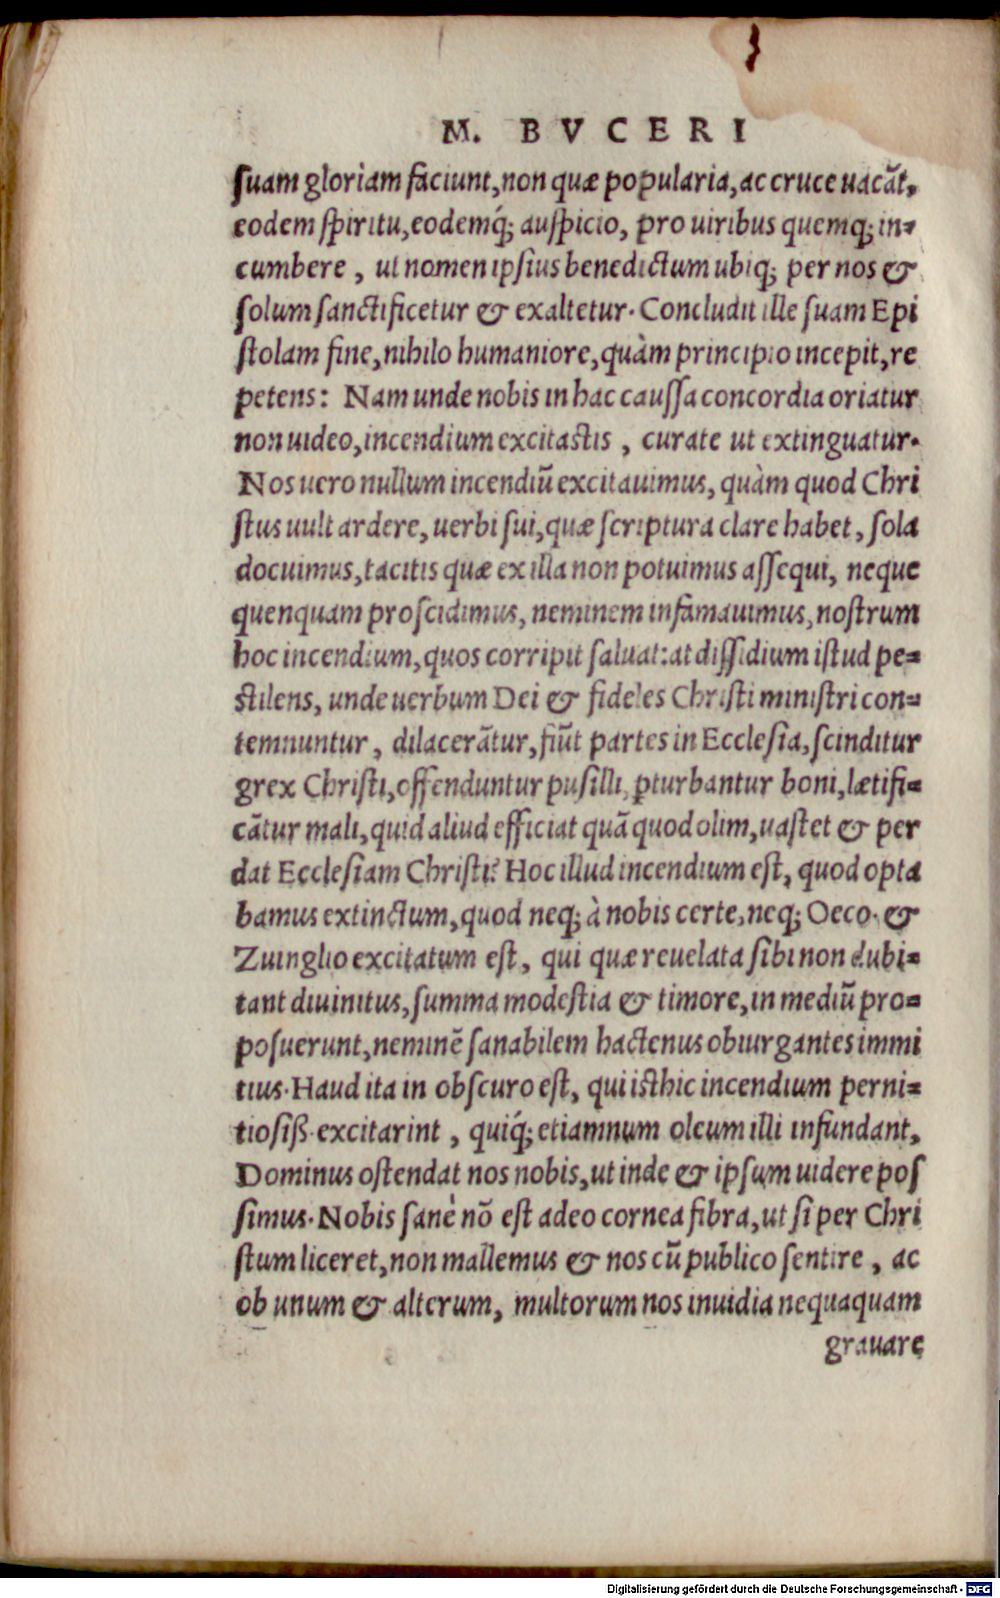 M. BVCERI
suam gloriam faciunt, non quæ popularia, ac cruce uacāt,
eodem spiritu, eodemq́; auspicio, pro uiribus quemq; in-
cumbere, ut nomen ipsius benedictum ubiq; per nos &
solum sanctificetur & exaltetur. Concludit ille suam Epi
stolam fine, nihilo humaniore, quàm principio incepit, re
petens: Nam unde nobis in hac caussa concordia oriatur
non uideo, incendium excitastis, curate ut extinguatur.
Nos uero nullum incendiū excitauimus, quàm quod Chri
stus uult ardere, uerbi sui, quæ scriptura clare habet, sola
docuimus, tacitis quæ ex illa non potuimus assequi, neque
quenquam proscidimus, neminem infamauimus, nostrum
hoc incendium, quos corripit saluat: at dissidium istud pe-
stilens, unde uerbum Dei & fideles Christi ministri con-
temnuntur, dilacerātur, fiūt partes in Ecclesia, scinditur
grex Christi, offenduntur pusilli, ꝑturbantur boni, lætifi-
cātur mali, quid aliud efficiat quā quod olim, uastet & per
dat Ecclesiam Christi? Hoc illud incendium est, quod opta
bamus extinctum, quod neq; à nobis certe, neq; Oeco. &
Zuinglio excitatum est, qui quæ reuelata sibi non dubi-
tant diuinitus, summa modestia & timore, in mediū pro-
posuerunt, neminē sanabilem hactenus obiurgantes immi
tius. Haud ita in obscuro est, qui isthic incendium perni-
tiosiß. excitarint, quiq́; etiamnum oleum illi infundant,
Dominus ostendat nos nobis, ut inde & ipsum uidere pos
simus. Nobis sanè nō est adeo cornea fibra, ut si per Chri
stum liceret, non mallemus & nos cū publico sentire, ac
ob unum & alterum, multorum nos inuidia nequaquam
grauare
Digitalisierung gefördert durch die Deutsche Forschungsgemeinschaft - DFG